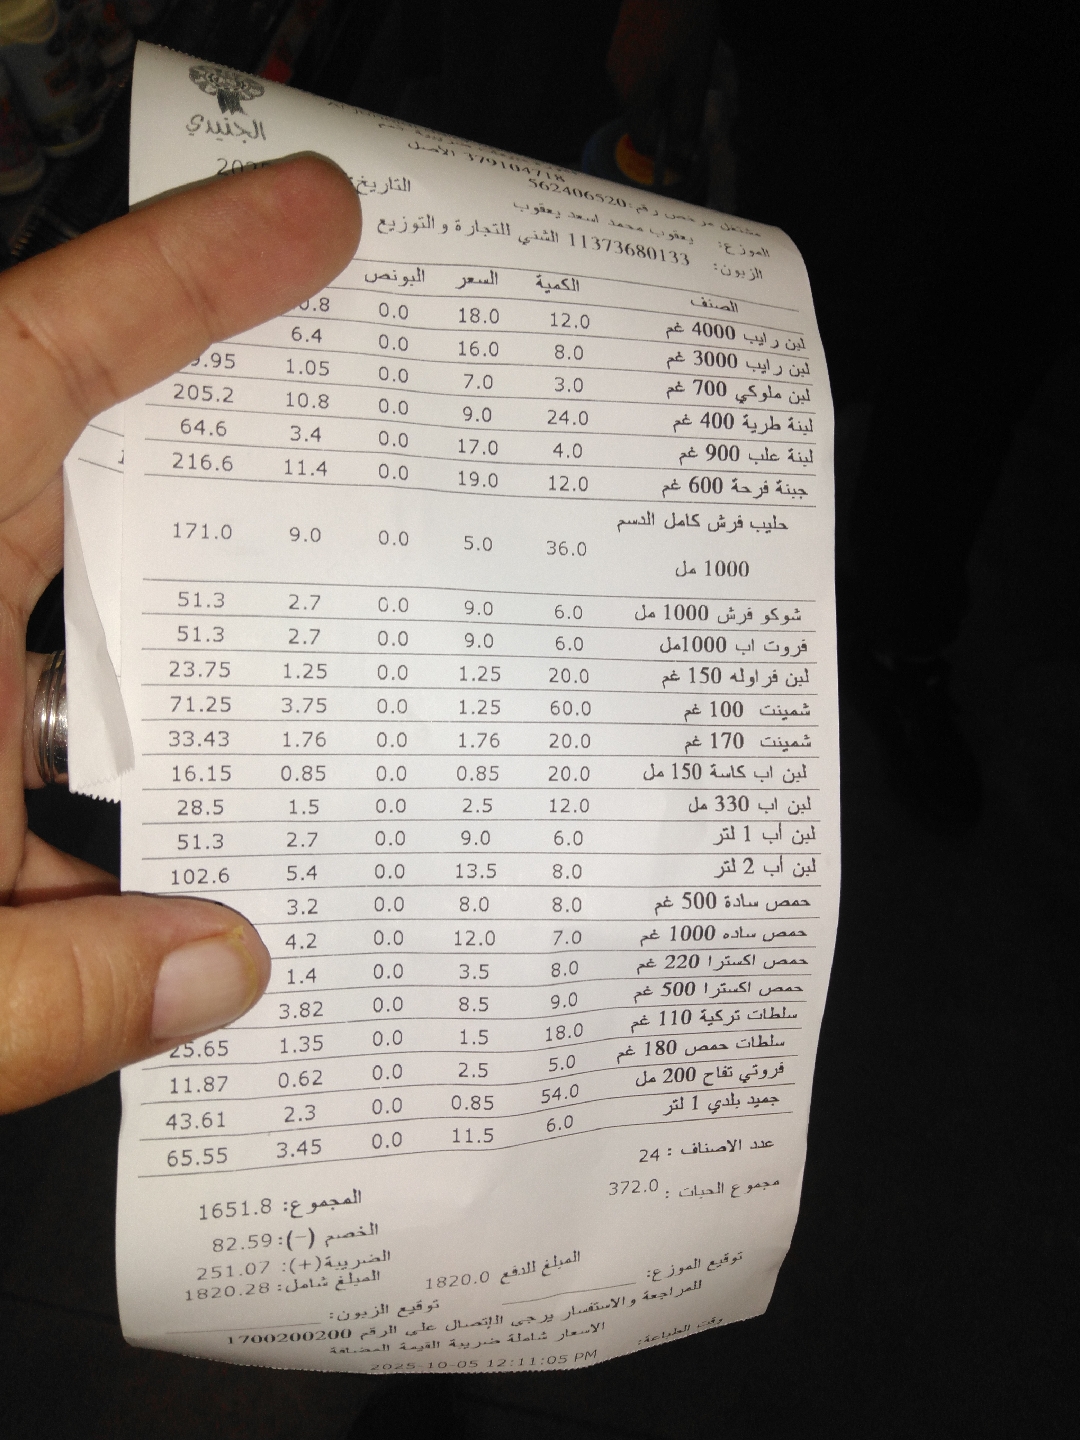 الجنيدي
379104718 الأصل
مشتغل مرخص رقم: 562406520
التاريخ:
الموزع: يعقوب محمد اسعد يعقوب
الزبون: 11373680133 الشني للتجارة والتوزيع
الصنف الكمية السعر البونص
لبن رايب 4000 غم 12.0 18.0 0.0
لبن رايب 3000 غم 8.0 16.0 0.0 6.4
لبن ملوكي 700 غم 3.0 7.0 0.0 1.05
لبنة طرية 400 غم 24.0 9.0 0.0 10.8 205.2
لبنة علب 900 غم 4.0 17.0 0.0 3.4 64.6
جبنة فرحة 600 غم 12.0 19.0 0.0 11.4 216.6
حليب فرش كامل الدسم
1000 مل 36.0 5.0 0.0 9.0 171.0
شوكو فرش 1000 مل 6.0 9.0 0.0 2.7 51.3
فروت اب 1000مل 6.0 9.0 0.0 2.7 51.3
لبن فراوله 150 غم 20.0 1.25 0.0 1.25 23.75
شمينت 100 غم 60.0 1.25 0.0 3.75 71.25
شمينت 170 غم 20.0 1.76 0.0 1.76 33.43
لبن اب كاسة 150 مل 20.0 0.85 0.0 0.85 16.15
لبن اب 330 مل 12.0 2.5 0.0 1.5 28.5
لبن أب 1 لتر 6.0 9.0 0.0 2.7 51.3
لبن أب 2 لتر 8.0 13.5 0.0 5.4 102.6
حمص سادة 500 غم 8.0 8.0 0.0 3.2
حمص ساده 1000 غم 7.0 12.0 0.0 4.2
حمص اكسترا 220 غم 8.0 3.5 0.0 1.4
حمص اكسترا 500 غم 9.0 8.5 0.0 3.82
سلطات تركية 110 غم 18.0 1.5 0.0 1.35 25.65
سلطات حمص 180 غم 5.0 2.5 0.0 0.62 11.87
فروتي تفاح 200 مل 54.0 0.85 0.0 2.3 43.61
جميد بلدي 1 لتر 6.0 11.5 0.0 3.45 65.55
عدد الاصناف : 24
مجموع الحبات : 372.0
المجموع: 1651.8
الخصم (-): 82.59
الضريبة(+): 251.07
المبلغ شامل: 1820.28
المبلغ للدفع 1820.0
توقيع الموزع:
توقيع الزبون:
للمراجعة والاستفسار يرجى الإتصال على الرقم 1700200200
الاسعار شاملة ضريبة القيمة المضافة
وقت الطباعة: 2025-10-05 12:11:05 PM